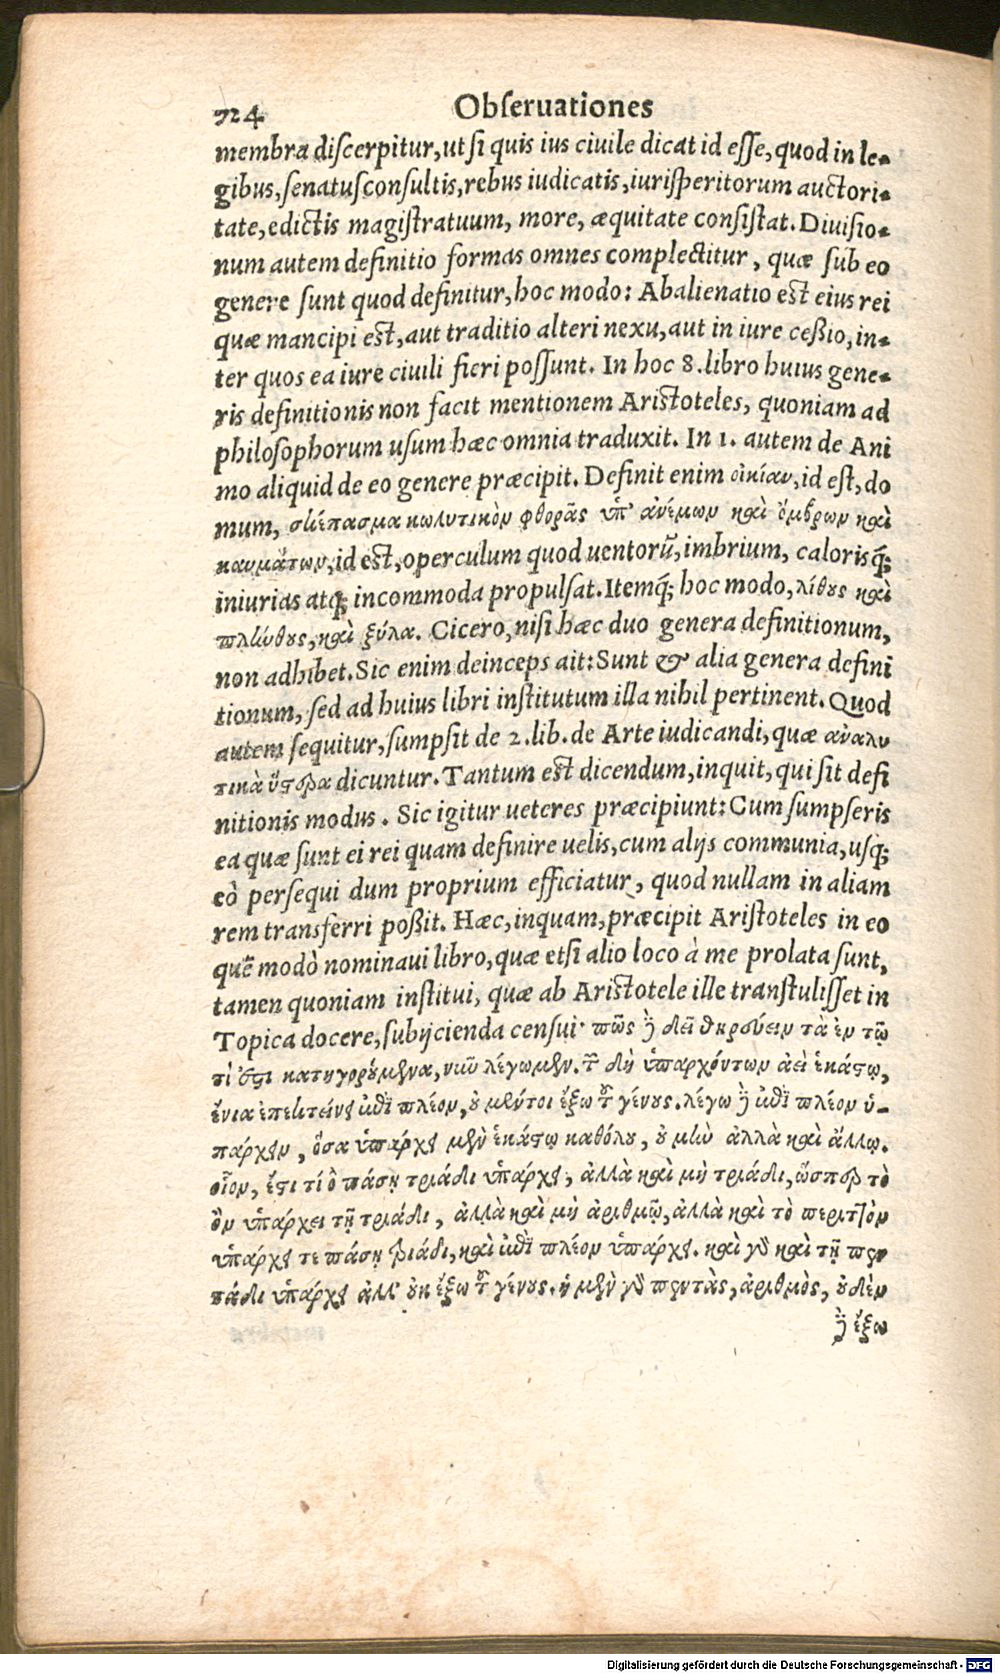 924 Obſeruationes
membra diſcerpitur, ut ſi quis ius ciuile dicat id eſſe, quod in le-
gibus, ſenatuſconſultis, rebus iudicatis, iuriſperitorum auctori-
tate, edictis magiſtratuum, more, æquitate conſiſtat. Diuiſio-
num autem definitio formas omnes complectitur, quæ ſub eo
genere ſunt quod definitur, hoc modo: Abalienatio eſt eius rei
quæ mancipi eſt, aut traditio alteri nexu, aut in iure ceßio, in-
ter quos ea iure ciuili fieri poſſunt. In hoc 8. libro huius gene-
ris definitionis non facit mentionem Ariſtoteles, quoniam ad
philoſophorum uſum hæc omnia traduxit. In 1. autem de Ani
mo aliquid de eo genere præcipit. Definit enim οἰκίαν, id eſt, do
mum, σκέπασμα κωλυτικὸν φθορᾶς ὑπ' ἀνέμων καὶ ὄμβρων καὶ
καυμάτων, id eſt, operculum quod uentorũ, imbrium, caloris q́;
iniurias atq; incommoda propulſat. Itemq́; hoc modo, λίθους καὶ
πλίνθους, καὶ ξύλα. Cicero, niſi hæc duo genera definitionum,
non adhibet. Sic enim deinceps ait: Sunt & alia genera defini
tionum, ſed ad huius libri inſtitutum illa nihil pertinent. Quod
autem ſequitur, ſumpſit de 2. lib. de Arte iudicandi, quæ ἀναλυ
τικὰ ὕστερα dicuntur. Tantum eſt dicendum, inquit, qui ſit defi
nitionis modus. Sic igitur ueteres præcipiunt: Cum ſumpſeris
ea quæ ſunt ei rei quam definire uelis, cum alijs communia, uſq;
eò perſequi dum proprium efficiatur, quod nullam in aliam
rem transferri poßit. Hæc, inquam, præcipit Ariſtoteles in eo
quẽ modò nominaui libro, quæ etſi alio loco à me prolata ſunt,
tamen quoniam inſtitui, quæ ab Ariſtotele ille tranſtuliſſet in
Topica docere, ſubijcienda cenſui· πῶς δὲ δεῖ θηρεύειν τὰ ἐν τῷ
τί ἐστι κατηγορούμενα, νῦν λέγωμεν. τῶν δὴ ὑπαρχόντων ἀεὶ ἑκάστῳ,
ἔνια ἐπεκτείνει ἐπὶ πλέον, οὐ μέντοι ἔξω τοῦ γένους. λέγω δὲ ἐπὶ πλέον ὑ-
πάρχειν, ὅσα ὑπάρχει μὲν ἑκάστῳ καθόλου, οὐ μὴν ἀλλὰ καὶ ἄλλῳ.
οἷον, ἔστι τί ὃ πάσῃ τριάδι ὑπάρχει, ἀλλὰ καὶ μὴ τριάδι, ὥσπερ τὸ
ὂν ὑπάρχει τῇ τριάδι, ἀλλὰ καὶ μὴ ἀριθμῷ, ἀλλὰ καὶ τὸ περιττὸν
ὑπάρχει τε πάσῃ τριάδι, καὶ ἐπὶ πλέον ὑπάρχει. καὶ γὰρ καὶ τῇ πεν
τάδι ὑπάρχει ἀλλ' οὐκ ἔξω τοῦ γένους. ἡ μὲν γὰρ πεντὰς, ἀριθμὸς, οὐδὲν
δὲ ἔξω
Digitalisierung gefördert durch die Deutsche Forschungsgemeinschaft - DFG